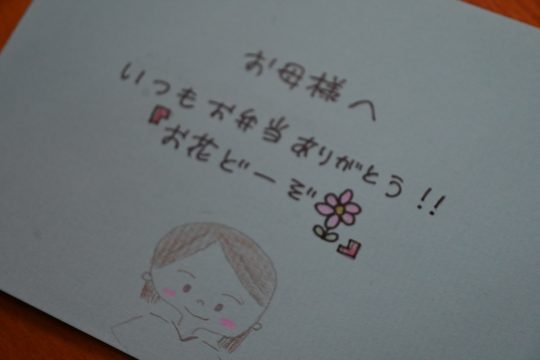 お母様へ
いつもお弁当ありがとう!!
『お花どーぞ』